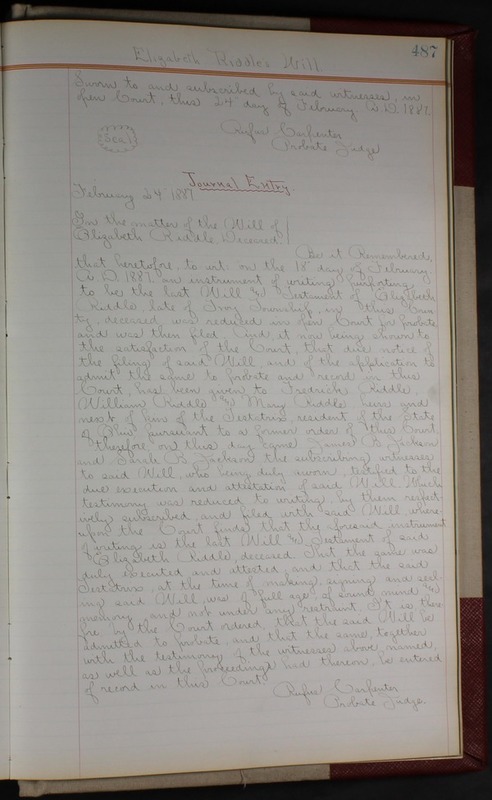 487
Elizabeth Riddles Will
Sworn to and subscribed by said witnesses, in
open Court, this 24 day of February A.D. 1887.
Rufus Carpenter
Seal
Probate Judge
Journal Entry
February 24 1887
In the matter of the Will of
Elizabeth Riddle Deceased.
Be it Remembered,
that heretofore, to wit: on the 18 day of February
A.D. 1887 an instrument of writing purporting
to be the last Will & Testament of Elizabeth
Riddle, late of Troy Township, in this Coun
ty, deceased was produced in open Court for probate
and was then filed. And, it now being shown to
the satisfaction of the Court, that due notice of
the filing of said Will, and of the application to
admit the same to probate and record in this
Court, has been given to Fredrick Riddle
William Riddle & Mary Riddle heirs and
next of kin of the Testatrix, resident of the State
of Ohio pursuant to a former order of this Court
therefore on this day came James B Jackson
and Sarah B Jackson the subscribing witnesses
to said Will, who being duly sworn, testified to the
due execution and attestation of said Will. Which
testimony was reduced to writing, by them respect-
ively subscribed, and filed with said Will where-
upon the Court finds that thy foresaid instrument
of writing is the last Will & Testament of said
Elizabeth Riddle, deceased. That the same was
duly executed and attested, and that the said
Testatrix, at the time of making, signing and seal-
ing said Will, was of full age of sound mind &
memory and not under any restraint. It is there-
fore by the Court ordered, that the said Will be
admitted to probate, and that the same, together
with the testimony of the witnesses above named,
as well as the proceedings had thereon, be entered
of record in this Court.
Rufus Carpenter
Probate Judge.